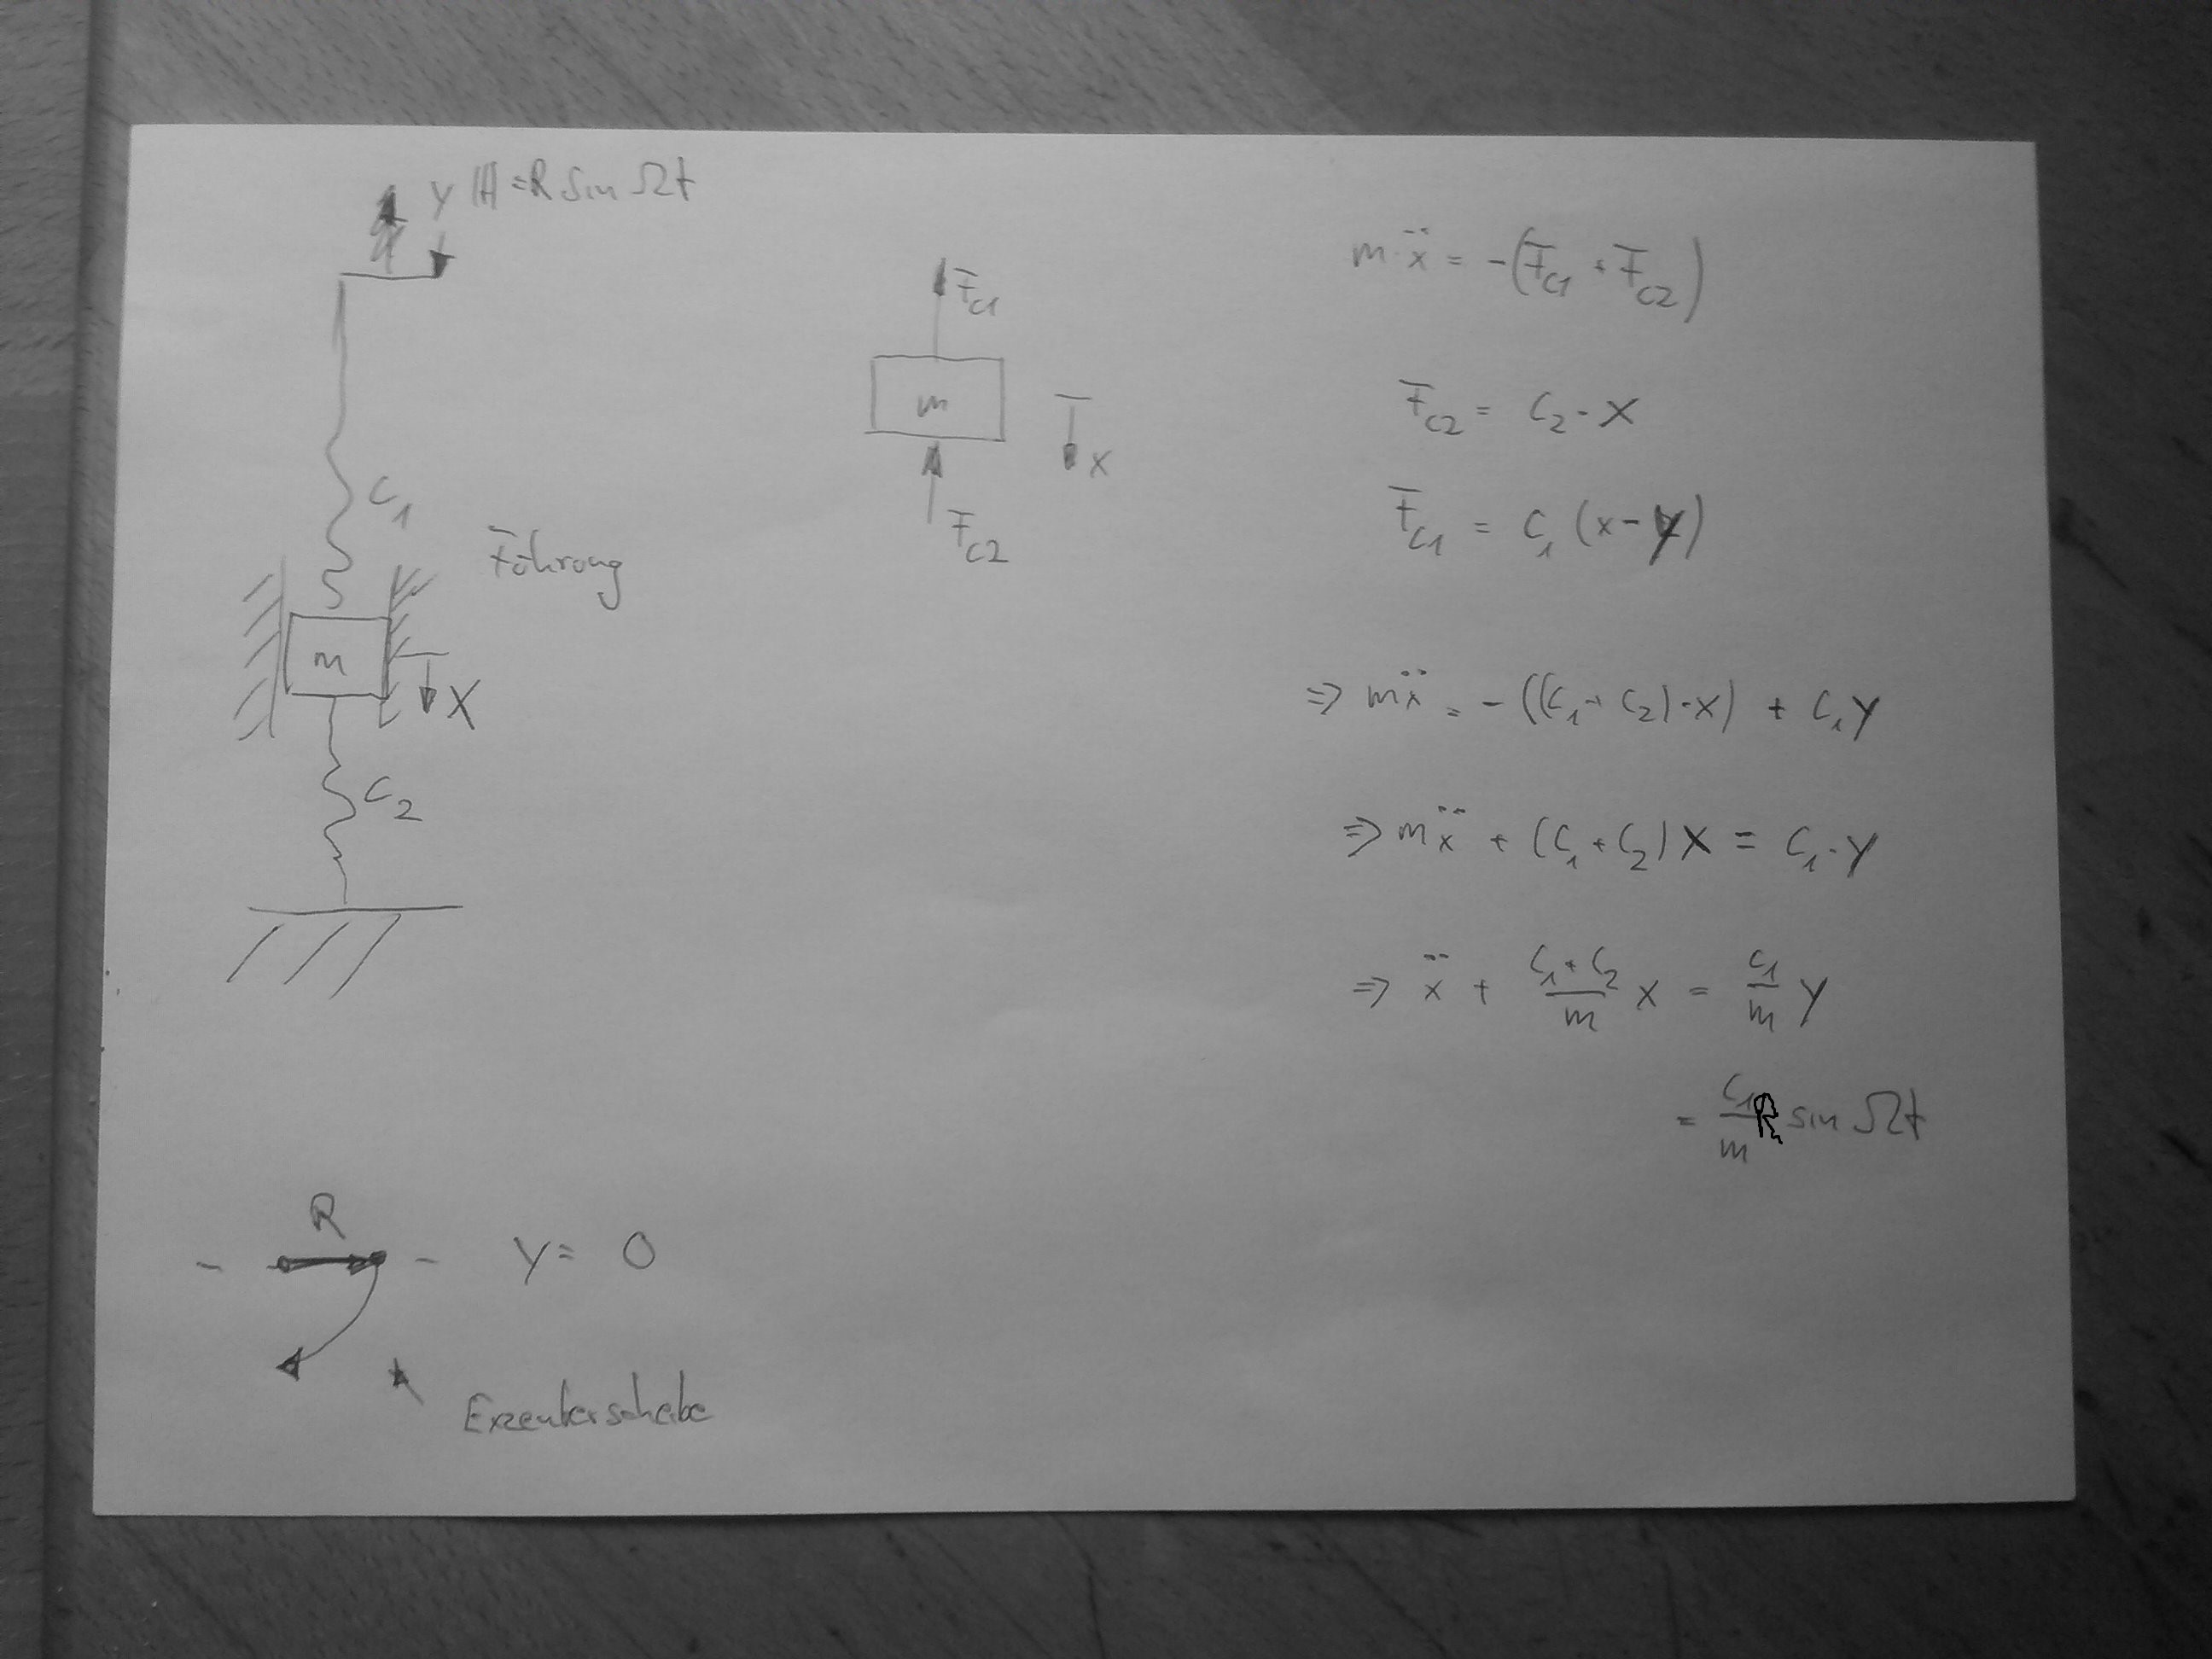 y(t) = R sin Ωt
C₁
Führung
m
X
C₂
F_C1
m
X
F_C2
m·ẍ = -(F_C1 + F_C2)
F_C2 = C₂·X
F_C1 = C₁(x-y)
⇒ mẍ = -((C₁+C₂)·X) + C₁y
⇒ mẍ + (C₁+C₂)X = C₁·y
⇒ ẍ + (C₁+C₂)/m X = C₁/m y
= C₁/m R sin Ωt
R
y = 0
Exzenterscheibe